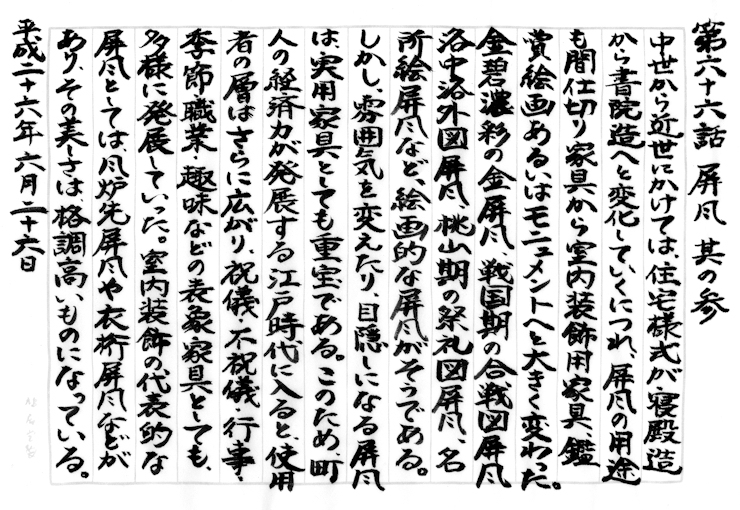 第六十六話 屏風 其の参
中世から近世にかけては、住宅様式が、寝殿造
から書院造へと変化していくにつれ、屏風の用途
も間仕切り家具から室内装飾用家具、鑑
賞絵画あるいはモニュメントへと大きく変わった。
金碧濃彩の金屏風、戦国期の合戦図屏風
洛中洛外図屏風、桃山期の祭礼図屏風、名
所絵屏風など、絵画的な屏風がそうである。
しかし、雰囲気を変えたり、目隠しになる屏風
は、実用家具としても重宝である。このため、町
人の経済力が発展する江戸時代に入ると、使用
者の層はさらに広がり、祝儀・不祝儀・行事・
季節・職業・趣味などの表象家具としても、
多様に発展していった。室内装飾の代表的な
屏風としては風炉先屏風や衣桁屏風などが
あり、その美しさは格調高いものになっている。
平成二十六年六月二十六日